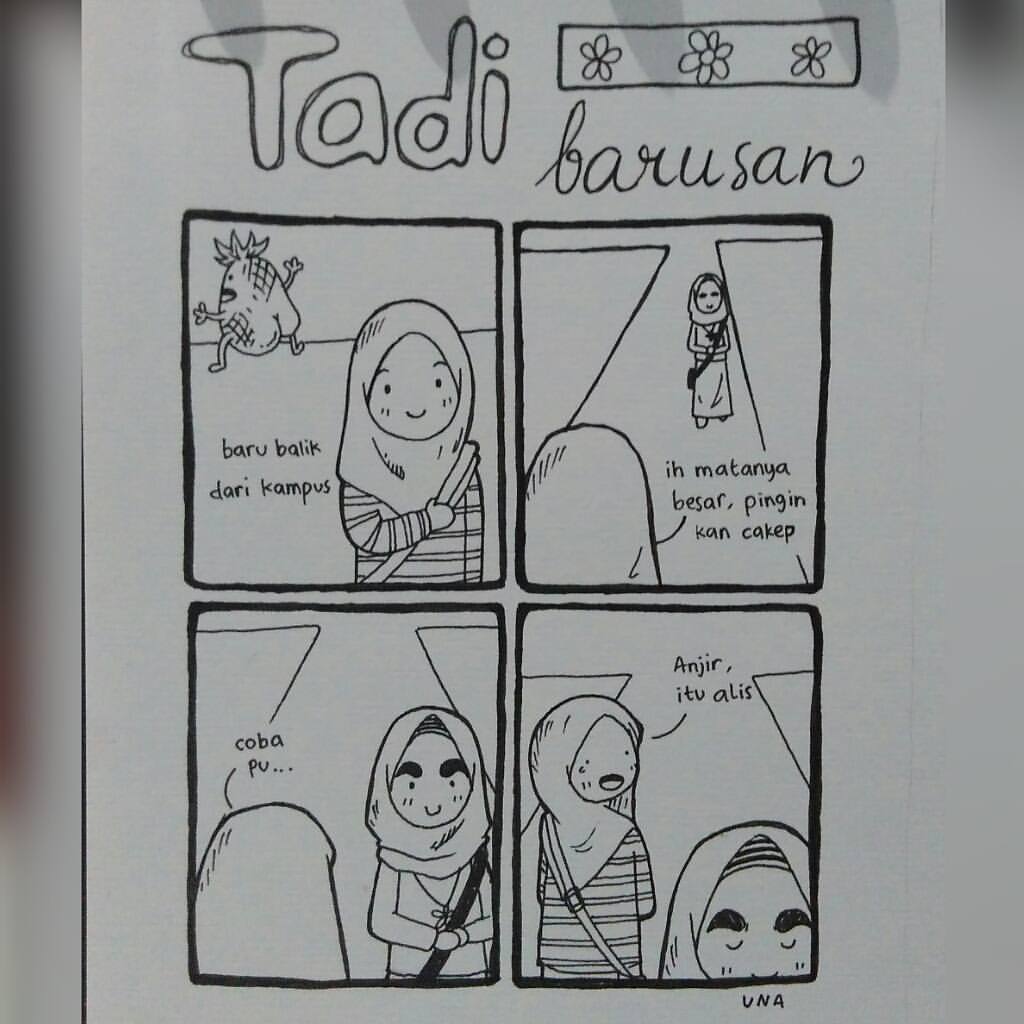 Tadi
barusan
baru balik
dari kampus
ih matanya
besar, pingin
kan cakep
coba
pu...
Anjir,
itu alis
UNA